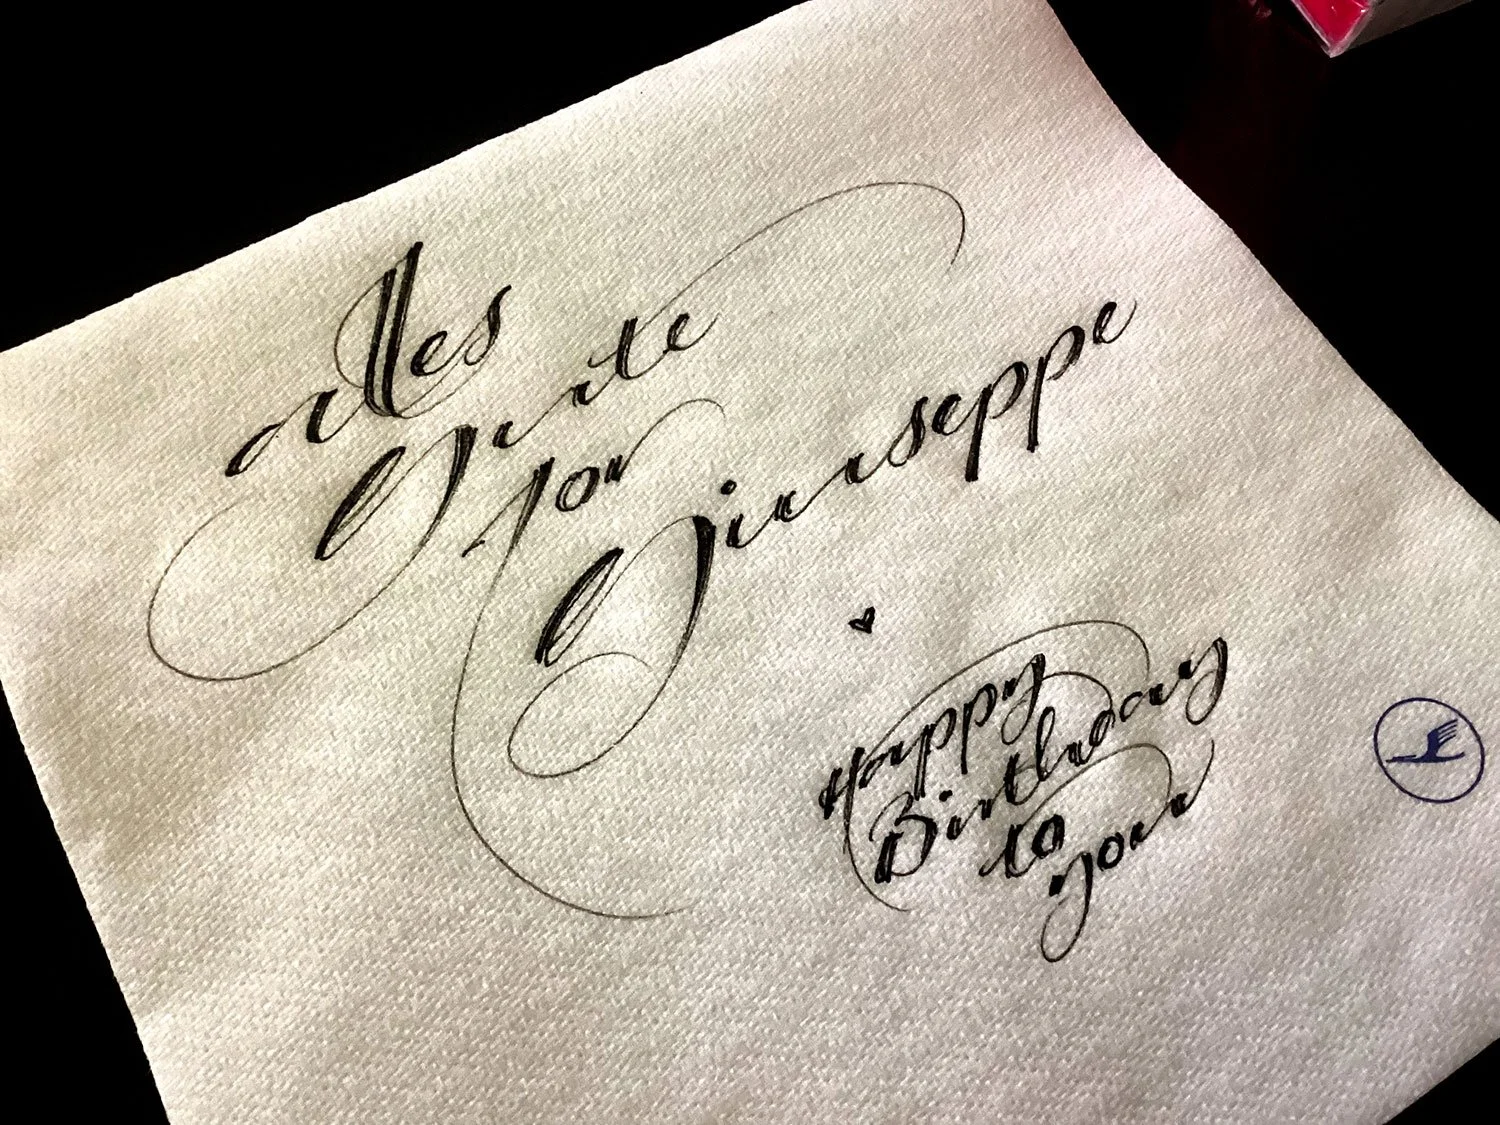 alles
Gute
for
Giuseppe
Happy
Birthday
to
you